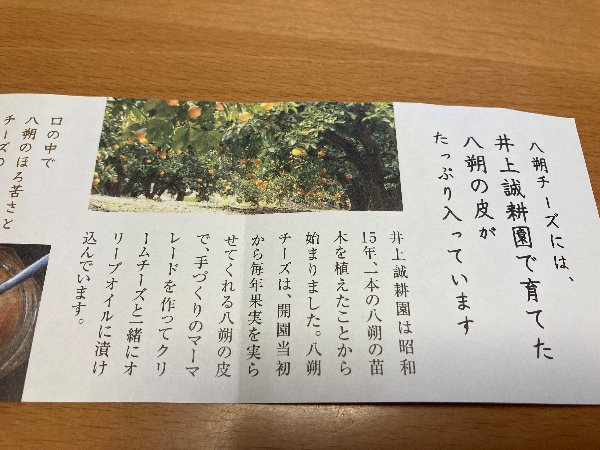 八朔チーズには、
井上誠耕園で育てた
八朔の皮が
たっぷり入っています
井上誠耕園は昭和
15年、一本の八朔の苗
木を植えたことから
始まりました。八朔
チーズは、開園当初
から毎年果実を実ら
せてくれる八朔の皮
で、手づくりのマーマ
レードを作ってクリ
ームチーズと一緒にオ
リーブオイルに漬け
込んでいます。
口の中で
八朔のほろ苦さと
チーズの